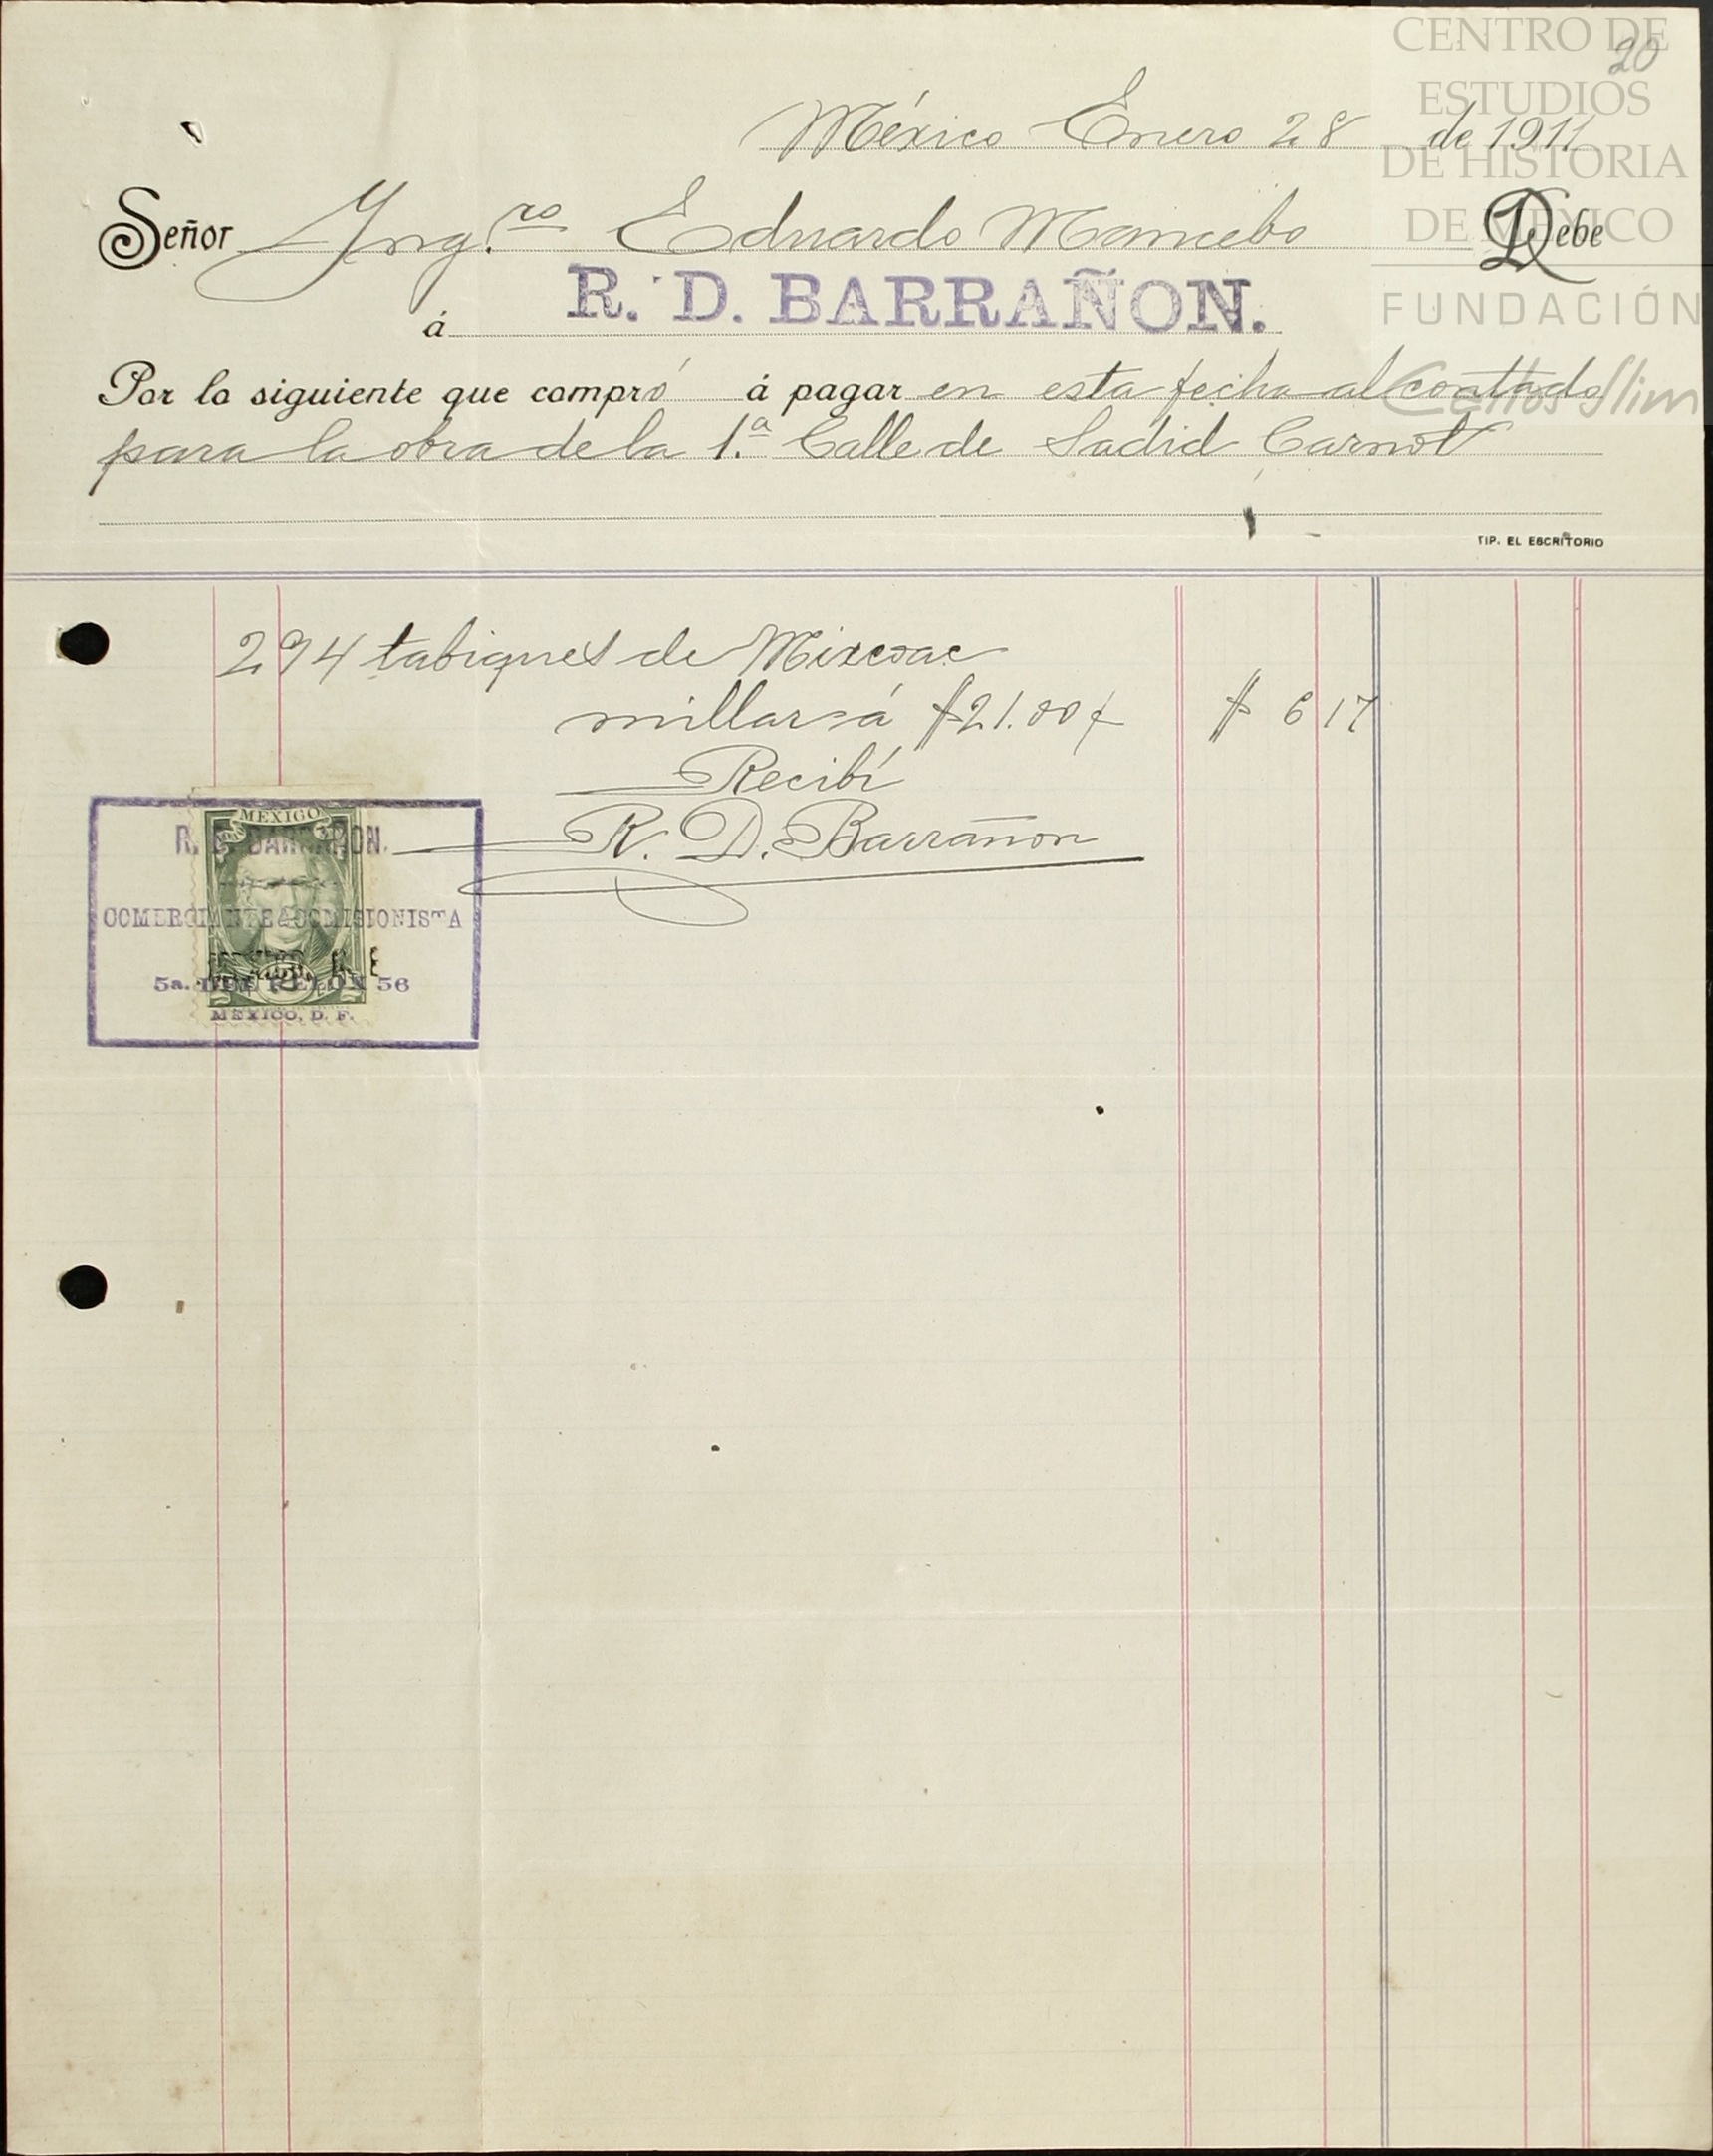 CENTRO DE
ESTUDIOS
DE HISTORIA
DE MÉXICO
FUNDACIÓN
Carlos Slim
20
México Enero 28 de 1911
Señor Yng.ro Eduardo Mancebo Debe
á R. D. BARRAÑON.
Por lo siguiente que compró á pagar en esta fecha al contado
para la obra de la 1.ª Calle de Sadid Carnot
TIP. EL ESCRITORIO
294 tabiques de Mixcoac
millar á $21.00 ¢ $ 6 17
Recibí
R. D. Barrañon
MEXICO
R. D. BARRAÑON.
COMERCIANTE & COMISIONISTA
5a. DEL RELOX 56
MEXICO, D. F.